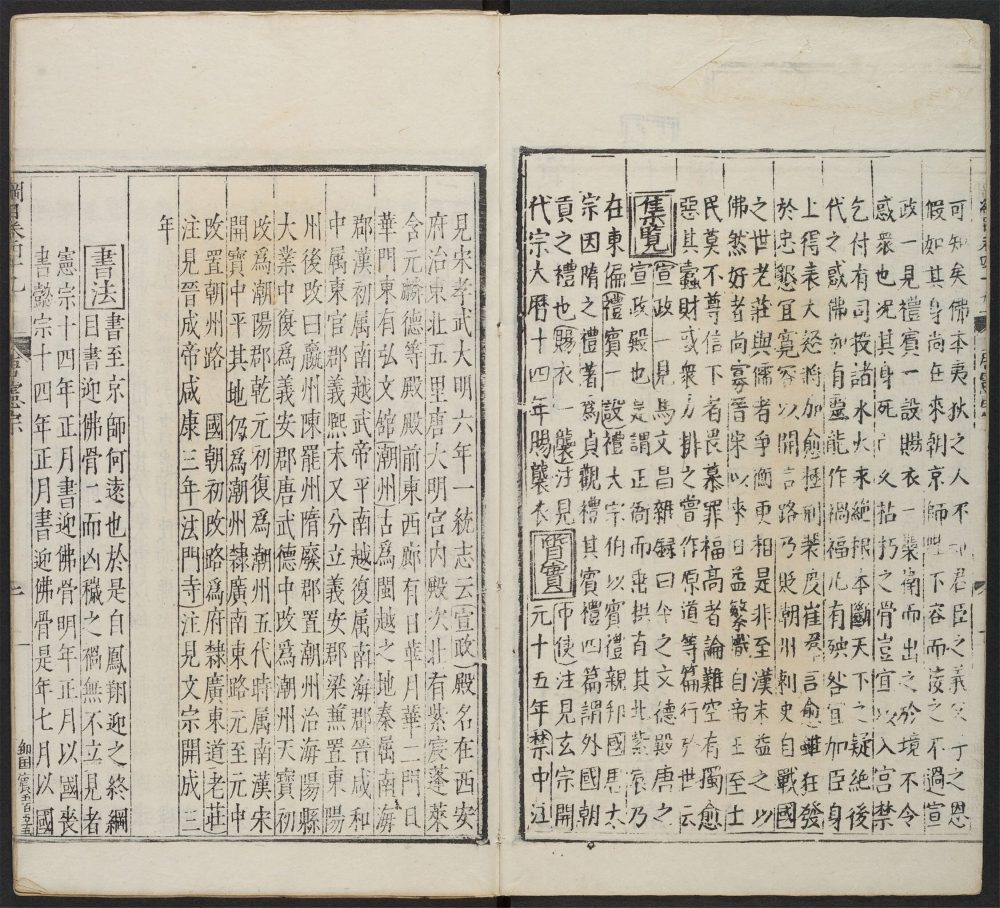 可知矣佛本夷狄之人不知君臣之義父子之恩
假如其身尚在來朝京師陛下容而接之不過宣
政一見禮賓一設賜衣一襲衛而出之於境不令
惑衆也况其身死已久枯朽之骨豈宜以入宮禁
乞付有司投諸水火永絶根本斷天下之疑絶後
代之惑佛如有靈能作禍福凡有殃咎宜加臣身
上得表大怒將加愈極刑裴度崔羣言愈雖狂發
於忠懇宜寛容以開言路乃貶潮州刺史自戰國
之世老莊與儒者爭衡更相是非至漢末益之以
佛然好者尚寡晉宋以來日益繁熾自帝王至士
民莫不尊信下者畏慕罪福高者論難空有獨愈
惡其蠹財惑衆力排之嘗作原道等篇行於世云
集覽 宣政一見馬文昌雜録曰今之文德殿唐之
宣政殿也是謂正衙而垂拱有其北紫宸乃
在東偏禮賓一設禮大宗伯以賓禮親邦國唐太
宗因隋之禮著爲貞觀禮其賓禮四篇謂外國朝
貢之禮也賜衣一襲注見
代宗大曆十四年賜襲衣 質實 中使注見玄宗開
元十五年禁中注
見宋孝武大明六年一統志云宣政殿名在西安
府治東北五里唐大明宮内殿次北有紫宸蓬萊
含元麟德等殿殿前東西廊有日華月華二門日
華門東有弘文館潮州古爲閩越之地秦屬南海
郡漢初属南越武帝平南越復属南海郡晉咸和
中属東官郡義熙末又分立義安郡梁兼置東陽
州後改曰瀛州陳罷州隋廢郡置潮州治海陽縣
大業中復爲義安郡唐武德中改爲潮州天寳初
改爲潮陽郡乾元初復爲潮州五代時属南漢宋
開寶中平其地仍爲潮州隸廣南東路元至元中
改置潮州路 國朝初改路爲府隸廣東道老莊
注見晉成帝咸康三年法門寺注見文宗開成三
年
書法 書至京師何遠也於是自鳳翔迎之終綱
目書迎佛骨二而凶穢之禍無不立見者
憲宗十四年正月書迎佛骨明年正月以國喪
書懿宗十四年正月書迎佛骨是年七月以國
綱目卷四十九
唐憲宗